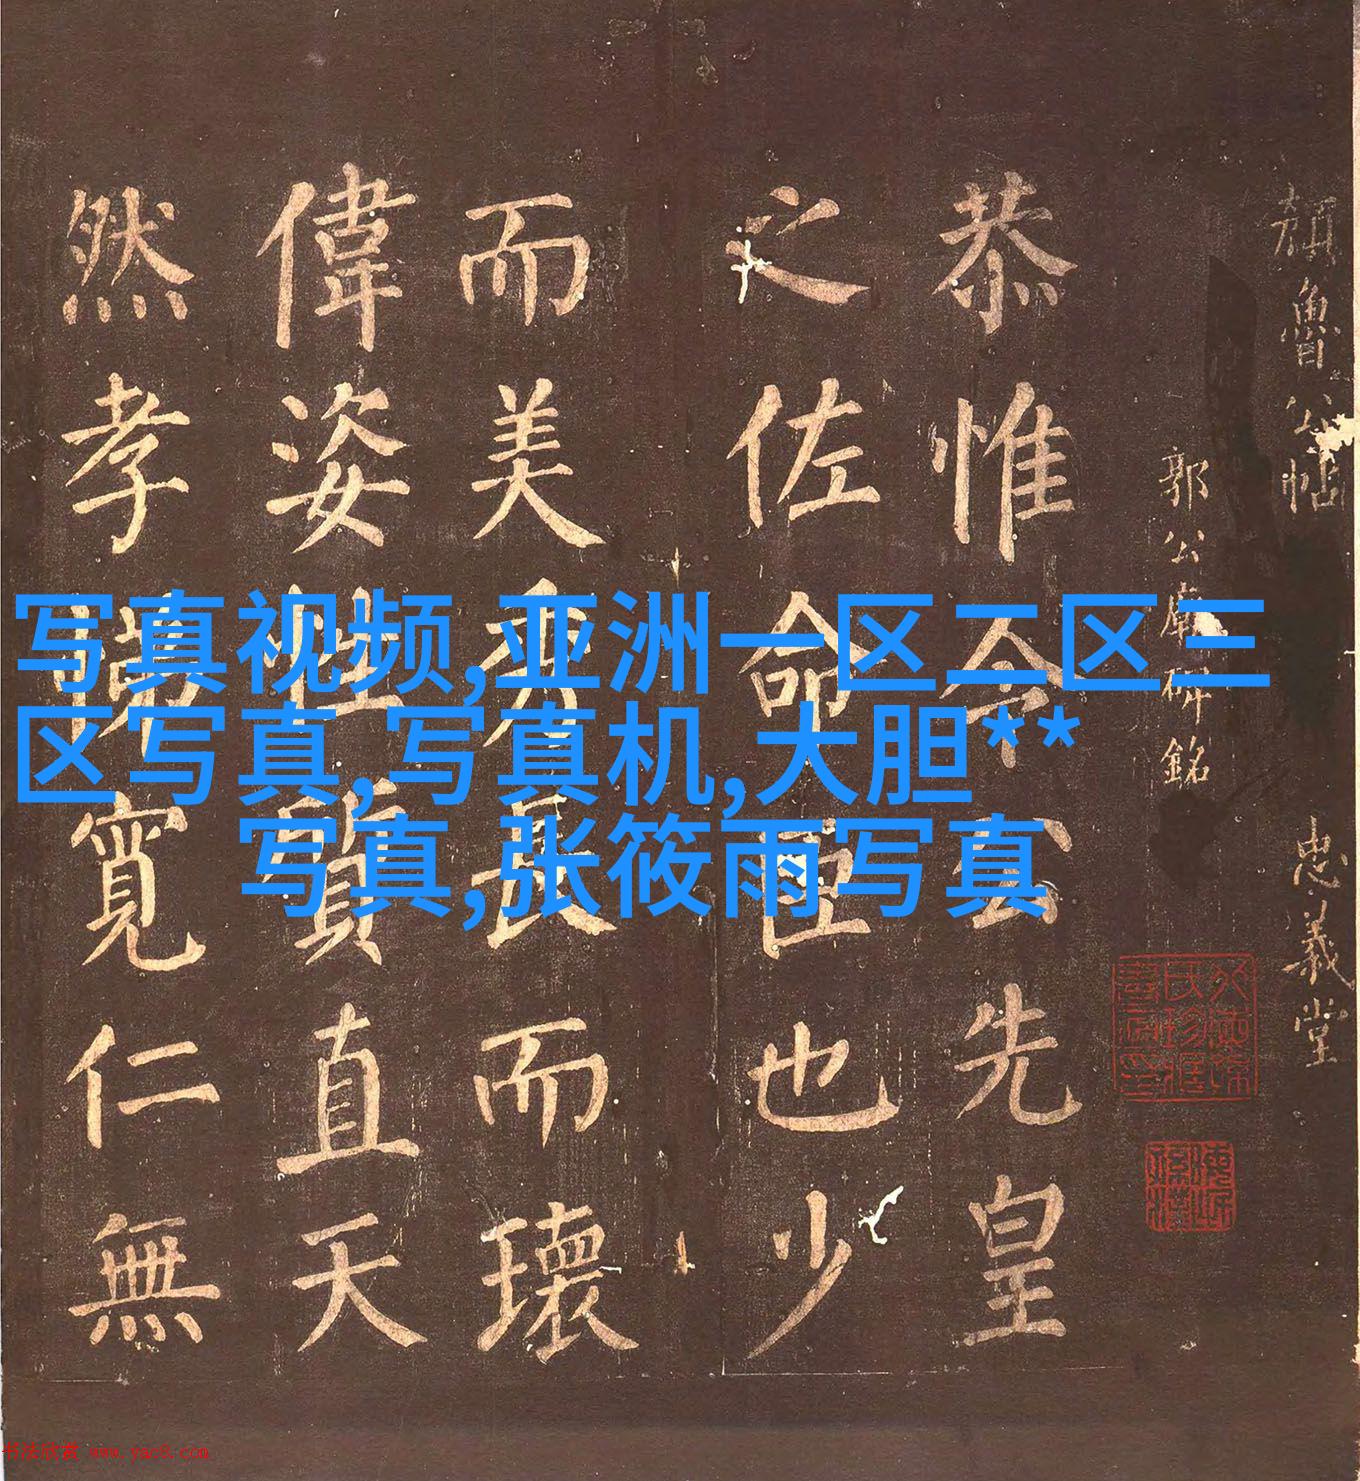 顏魯公帖 忠義堂
郭公廟碑銘
恭惟令公先皇
之佐命臣也少
而美秀長而瓌
偉姿性質直天
然孝悌寬仁無
写真视频,亚洲一区二区三
区写真,写真机,大胆**
写真,张筱雨写真
书法欣赏 www.yac8.com